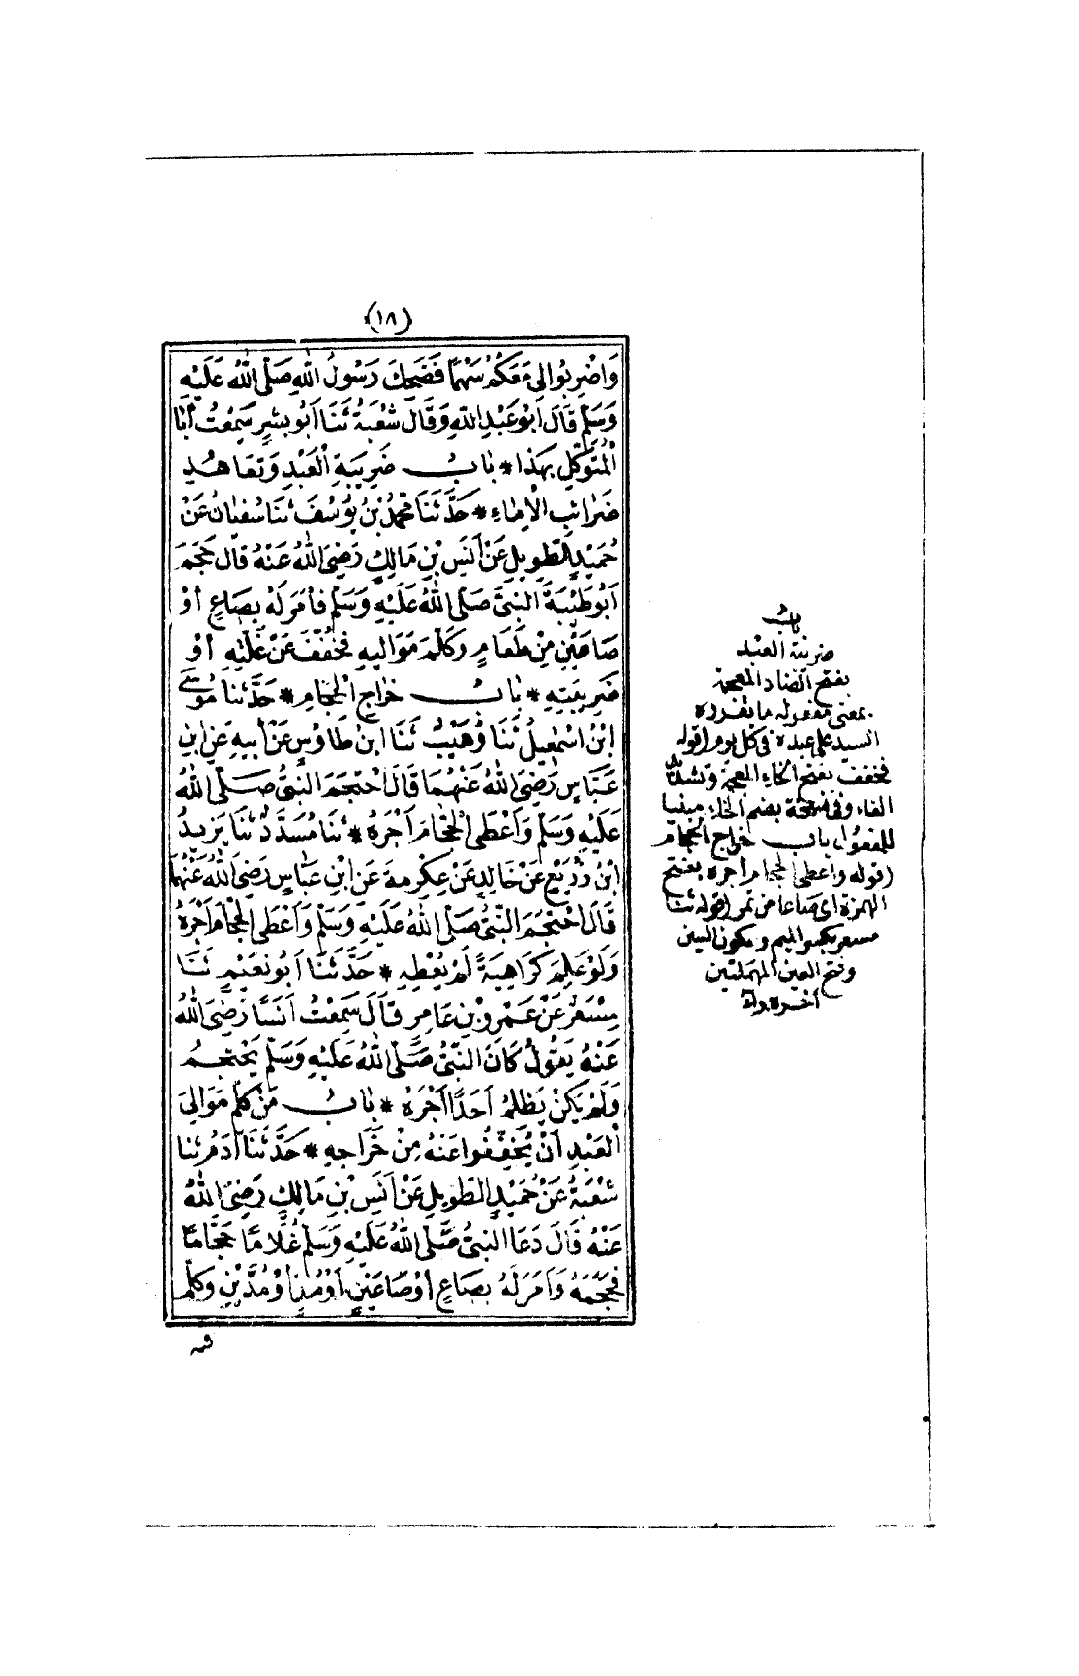 (١٨)
وَاضْرِبُوا لِي مَعَكُمْ سَهْمًا فَضَحِكَ رَسُولُ اللهِ صَلَّى اللهُ عَلَيْهِ
وَسَلَّمَ قَالَ أَبُو عَبْدِ اللهِ وَقَالَ شُعْبَةُ ثَنَا أَبُو بِشْرٍ سَمِعْتُ أَبَا
الْمُتَوَكِّلِ بِهَذَا * بَابُ ضَرِيبَةِ الْعَبْدِ وَتَعَاهُدِ
ضَرَائِبِ الْإِمَاءِ * حَدَّثَنَا مُحَمَّدُ بْنُ يُوسُفَ ثَنَا سُفْيَانُ عَنْ
حُمَيْدٍ الطَّوِيلِ عَنْ أَنَسِ بْنِ مَالِكٍ رَضِيَ اللهُ عَنْهُ قَالَ حَجَمَ
أَبُو طَيْبَةَ النَّبِيَّ صَلَّى اللهُ عَلَيْهِ وَسَلَّمَ فَأَمَرَ لَهُ بِصَاعٍ أَوْ
صَاعَيْنِ مِنْ طَعَامٍ وَكَلَّمَ مَوَالِيهِ فَخَفَّفَ عَنْ غَلَّتِهِ أَوْ
ضَرِيبَتِهِ * بَابُ خَرَاجِ الْحَجَّامِ * حَدَّثَنَا مُوسَى
ابْنُ اسْمَعِيلَ ثَنَا وُهَيْبٌ ثَنَا ابْنُ طَاوُسٍ عَنْ أَبِيهِ عَنِ ابْنِ
عَبَّاسٍ رَضِيَ اللهُ عَنْهُمَا قَالَ احْتَجَمَ النَّبِيُّ صَلَّى اللهُ
عَلَيْهِ وَسَلَّمَ وَأَعْطَى الْحَجَّامَ أَجْرَهُ * ثَنَا مُسَدَّدٌ ثَنَا يَزِيدُ
ابْنُ زُرَيْعٍ عَنْ خَالِدٍ عَنْ عِكْرِمَةَ عَنِ ابْنِ عَبَّاسٍ رَضِيَ اللهُ عَنْهُمَا
قَالَ احْتَجَمَ النَّبِيُّ صَلَّى اللهُ عَلَيْهِ وَسَلَّمَ وَأَعْطَى الْحَجَّامَ أَجْرَهُ
وَلَوْ عَلِمَ كَرَاهِيَةً لَمْ يُعْطِهِ * حَدَّثَنَا أَبُو نُعَيْمٍ ثَنَا
مِسْعَرٌ عَنْ عَمْرِو بْنِ عَامِرٍ قَالَ سَمِعْتُ أَنَسًا رَضِيَ اللهُ
عَنْهُ يَقُولُ كَانَ النَّبِيُّ صَلَّى اللهُ عَلَيْهِ وَسَلَّمَ يَحْتَجِمُ
وَلَمْ يَكُنْ يَظْلِمُ أَحَدًا أَجْرَهُ * بَابُ مَنْ كَلَّمَ مَوَالِيَ
الْعَبْدِ أَنْ يُخَفِّفُوا عَنْهُ مِنْ خَرَاجِهِ * حَدَّثَنَا آدَمُ ثَنَا
شُعْبَةُ عَنْ حُمَيْدٍ الطَّوِيلِ عَنْ أَنَسِ بْنِ مَالِكٍ رَضِيَ اللهُ
عَنْهُ قَالَ دَعَا النَّبِيُّ صَلَّى اللهُ عَلَيْهِ وَسَلَّمَ غُلَامًا حَجَّامًا
فَحَجَمَهُ وَأَمَرَ لَهُ بِصَاعٍ أَوْ صَاعَيْنِ أَوْ مُدٍّ أَوْ مُدَّيْنِ وَكَلَّمَ
فيه
باب
ضريبة العبد
بفتح الضاد المعجمة
بمعنى مفعوله ما يقرره
السيد على عبده فى كل يوم (قوله
فخفف بفتح الخاء المعجمة وتشديد
الفاء وفى نسخة بضم الخاء مبنيا
للمفعول باب خراج الحجام
(قوله وأعطى الحجام اجره بفتح
الهمزة اى صاعا من تمر (قوله ثنا
مسعر بكسر الميم وسكون السين
وفتح العين المهملتين
آخره راء